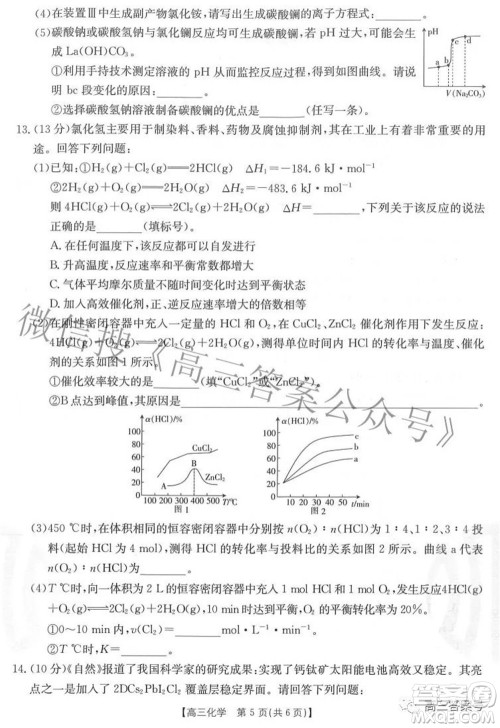 (4)在装置Ⅲ中生成副产物氯化铵,请写出生成碳酸镧的离子方程式:________。
(5)碳酸钠或碳酸氢钠与氯化镧反应均可生成碳酸镧,若 pH 过大,可能会生
成 La(OH)CO₃。
①利用手持技术测定溶液的 pH 从而监控反应过程,得到如图曲线。请说
明 bc 段变化的原因:________。
②选择碳酸氢钠溶液制备碳酸镧的优点是________(任写一条)。
pH
a b c d
V(Na₂CO₃)
13.(13 分)氯化氢主要用于制染料、香料、药物及腐蚀抑制剂,其在工业上有着重要的用
途。回答下列问题:
(1)已知:①H₂(g)+Cl₂(g)══2HCl(g) ΔH₁=-184.6 kJ·mol⁻¹
②2H₂(g)+O₂(g)══2H₂O(g) ΔH₂=-483.6 kJ·mol⁻¹
则 4HCl(g)+O₂(g)⇌2Cl₂(g)+2H₂O(g) ΔH=________,下列关于该反应的说法
正确的是________(填标号)。
A. 在任何温度下,该反应都可以自发进行
B. 升高温度,反应速率和平衡常数都增大
C. 当混合气体的物质的量不随时间变化时达到平衡状态
D. 加入高效催化剂,正、逆反应速率增大的倍数相等
(2)在刚性密闭容器中充入一定量的 HCl 和 O₂,在 CuCl₂、ZnCl₂ 催化剂作用下反应:
4HCl(g)+O₂(g)⇌2Cl₂(g)+2H₂O(g),测得单位时间内 HCl 的平衡转化率与温度
的关系如图 1 所示。
①催化效率较大的是________(填“CuCl₂”或“ZnCl₂”)。
②B 点达到峰值,其原因是________。
微信搜《高三答案公众号》
α(HCl)/%
80
60
40
20
CuCl₂
B
A
ZnCl₂
100 200 300 400 500 T/℃
图 1
α(HCl)/%
100
80
60
40
20
c
b
a
10 20 30 40 50 t/min
图 2
(3)450 ℃时,在体积相同的恒容密闭容器中分别按 n(O₂):n(HCl)为 1:4、1:2、3:4 投
料(起始 HCl 为 4 mol),测得 HCl 的转化率与投料比的关系如图 2 所示。曲线 a 代表
n(O₂):n(HCl)为________。
(4)T ℃时,向一体积为 2 L 的恒容密闭容器中充入 1 mol HCl 和 1 mol O₂,发生反应4HCl(g)
+O₂(g)⇌2Cl₂(g)+2H₂O(g),10 min 时达到平衡,O₂ 的平衡转化率为 20%。
①0~10 min 内,v(O₂)=________mol·L⁻¹·min⁻¹。
②T ℃时,K=________。
14.(10 分)《自然》报道了我国科学家的研究成果:实现了钙钛矿太阳能电池高效又稳定。其亮
点之一是加入了 2DCs₂PbI₂Cl₂ 覆盖层稳定界面。回答下列问题:
【高三化学 第 5 页(共 6 页)】
高三答案号